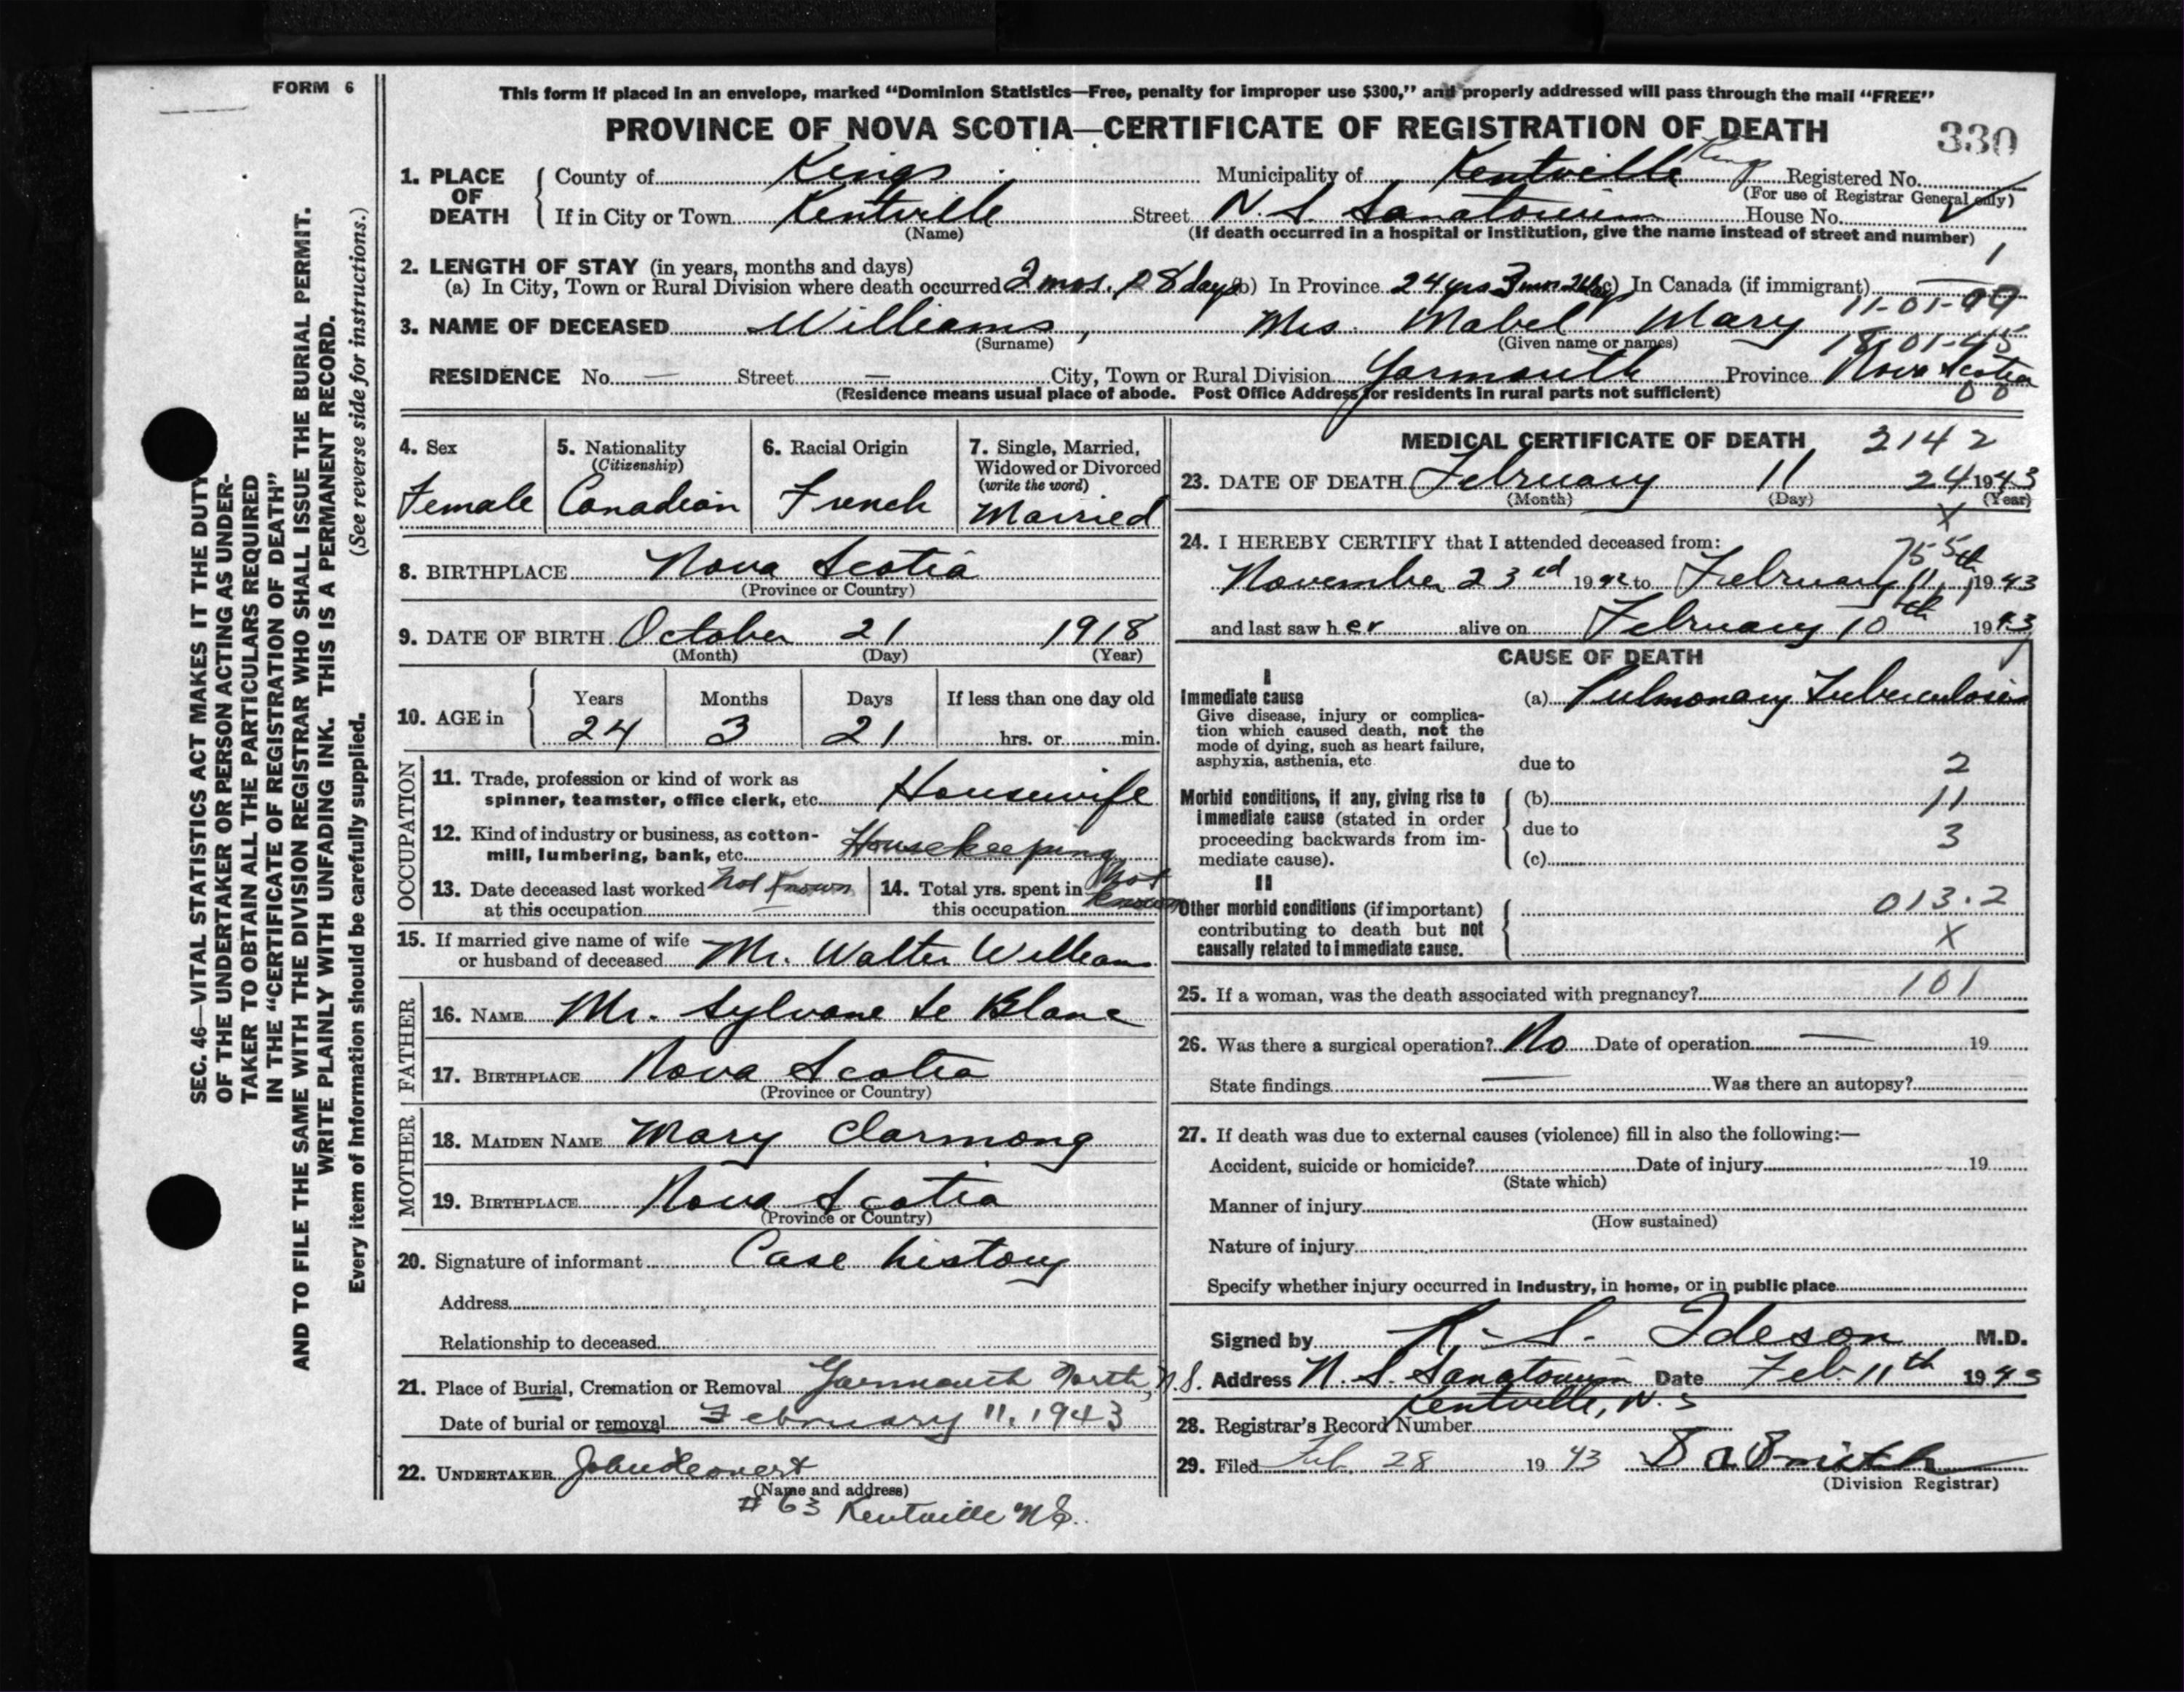 FORM 6
This form if placed in an envelope, marked “Dominion Statistics—Free, penalty for improper use $300,” and properly addressed will pass through the mail “FREE”
PROVINCE OF NOVA SCOTIA—CERTIFICATE OF REGISTRATION OF DEATH
330
1. PLACE OF DEATH { County of Kings Municipality of Kentville Kings Registered No.
(For use of Registrar General only)
If in City or Town Kentville Street N.S. Sanatorium House No.
(Name) (If death occurred in a hospital or institution, give the name instead of street and number)
1
2. LENGTH OF STAY (in years, months and days)
(a) In City, Town or Rural Division where death occurred 2 mos. 18 days (b) In Province 24 yrs 3 mos (c) In Canada (if immigrant) —
11-01-99
3. NAME OF DECEASED Williams, Mrs. Mabel Mary
(Surname) (Given name or names)
18-01-45
RESIDENCE No. — Street — City, Town or Rural Division Yarmouth Province Nova Scotia
(Residence means usual place of abode. Post Office Address for residents in rural parts not sufficient)
00
4. Sex 5. Nationality 6. Racial Origin 7. Single, Married,
(Citizenship) Widowed or Divorced
(write the word)
Female Canadian French Married
8. BIRTHPLACE Nova Scotia
(Province or Country)
9. DATE OF BIRTH October 21 1918
(Month) (Day) (Year)
Years Months Days If less than one day old
10. AGE in { 24 3 21 hrs. or min.
OCCUPATION
11. Trade, profession or kind of work as
spinner, teamster, office clerk, etc. Housewife
12. Kind of industry or business, as cotton-
mill, lumbering, bank, etc. Housekeeping
13. Date deceased last worked Not Known
at this occupation —
14. Total yrs. spent in Not
this occupation Known
15. If married give name of wife
or husband of deceased Mr. Walter Williams
FATHER
16. NAME Mr. Sylvane Le Blanc
17. BIRTHPLACE Nova Scotia
(Province or Country)
MOTHER
18. MAIDEN NAME Mary Clarmong
19. BIRTHPLACE Nova Scotia
(Province or Country)
20. Signature of informant Case history
Address
Relationship to deceased
21. Place of Burial, Cremation or Removal Yarmouth North, N.S.
Date of burial or removal February 11, 1943
22. UNDERTAKER
(Name and address)
# 63 Kentville N.S.
MEDICAL CERTIFICATE OF DEATH 2142
23. DATE OF DEATH February 11 24 1943
(Month) (Day) (Year)
X
24. I HEREBY CERTIFY that I attended deceased from:
755
November 23rd 1942 to February 11th, 1943
and last saw her alive on February 10th 1943
CAUSE OF DEATH
I
Immediate cause (a) Pulmonary Tuberculosis
Give disease, injury or complica-
tion which caused death, not the
mode of dying, such as heart failure,
asphyxia, asthenia, etc. due to 2
Morbid conditions, if any, giving rise to (b) 11
immediate cause (stated in order due to
proceeding backwards from im- 3
mediate cause). (c)
II
Other morbid conditions (if important) 013.2
contributing to death but not
causally related to immediate cause. X
25. If a woman, was the death associated with pregnancy? 101
26. Was there a surgical operation? No Date of operation — 19
State findings — Was there an autopsy?
27. If death was due to external causes (violence) fill in also the following:—
Accident, suicide or homicide? Date of injury 19
(State which)
Manner of injury
(How sustained)
Nature of injury
Specify whether injury occurred in Industry, in home, or in public place
Signed by R. S. Ideson M.D.
Address N. S. Sanatorium Date Feb. 11th 1943
Kentville, N.S
28. Registrar's Record Number
29. Filed Feb. 28 1943 Smith
(Division Registrar)
SEC. 46—VITAL STATISTICS ACT MAKES IT THE DUTY
OF THE UNDERTAKER OR PERSON ACTING AS UNDER-
TAKER TO OBTAIN ALL THE PARTICULARS REQUIRED
IN THE “CERTIFICATE OF REGISTRATION OF DEATH”
AND TO FILE THE SAME WITH THE DIVISION REGISTRAR WHO SHALL ISSUE THE BURIAL PERMIT.
WRITE PLAINLY WITH UNFADING INK. THIS IS A PERMANENT RECORD.
Every item of information should be carefully supplied. (See reverse side for instructions.)